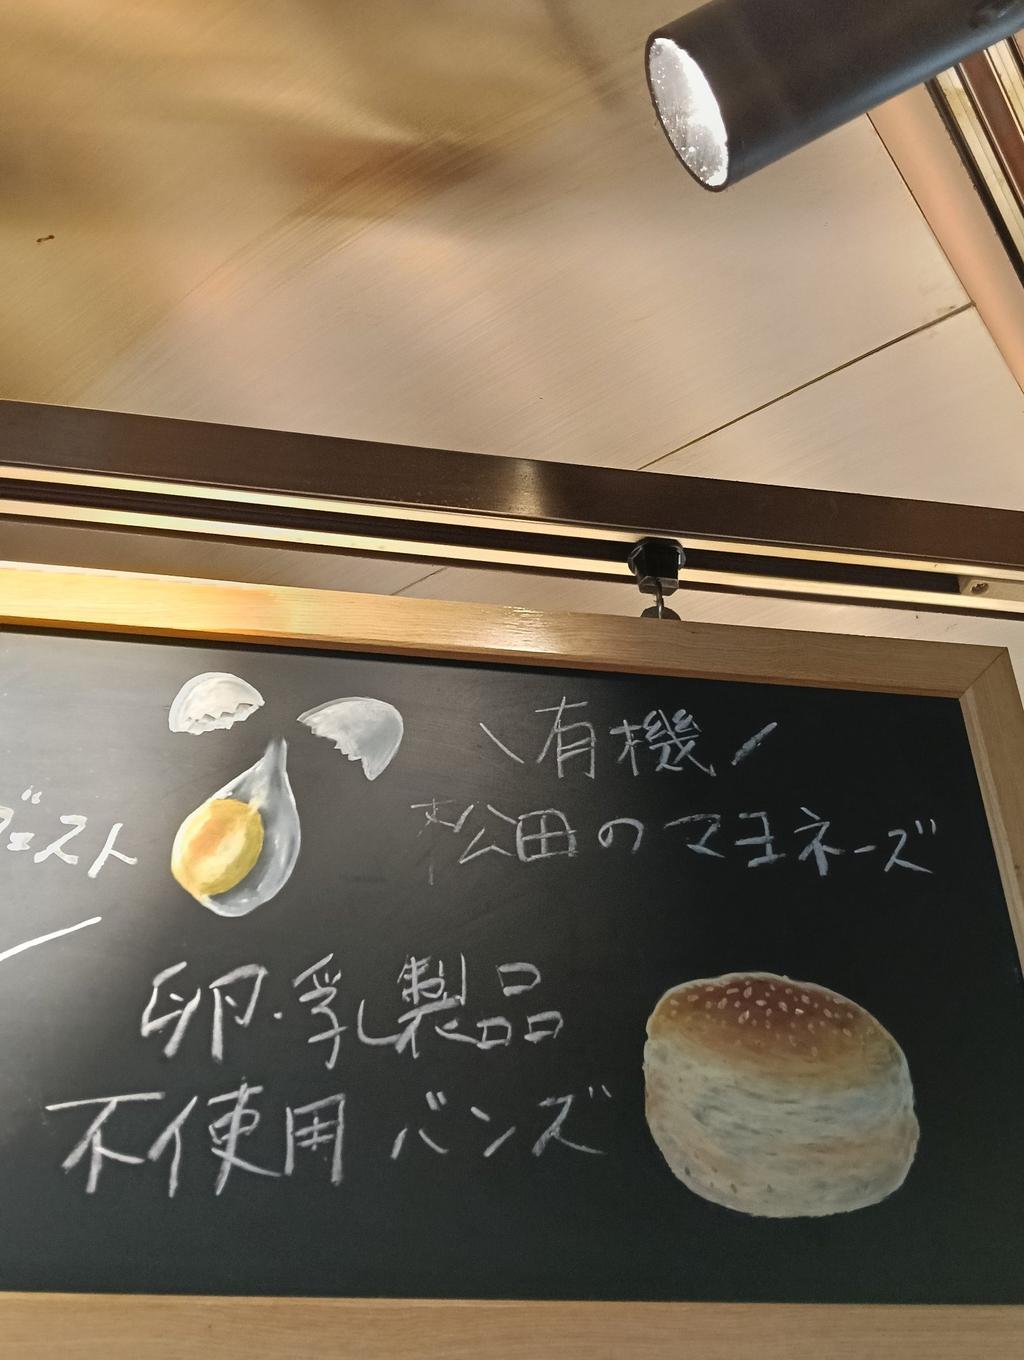 有機
松田のマヨネーズ
ジェスト
卵・乳製品
不使用バンズ